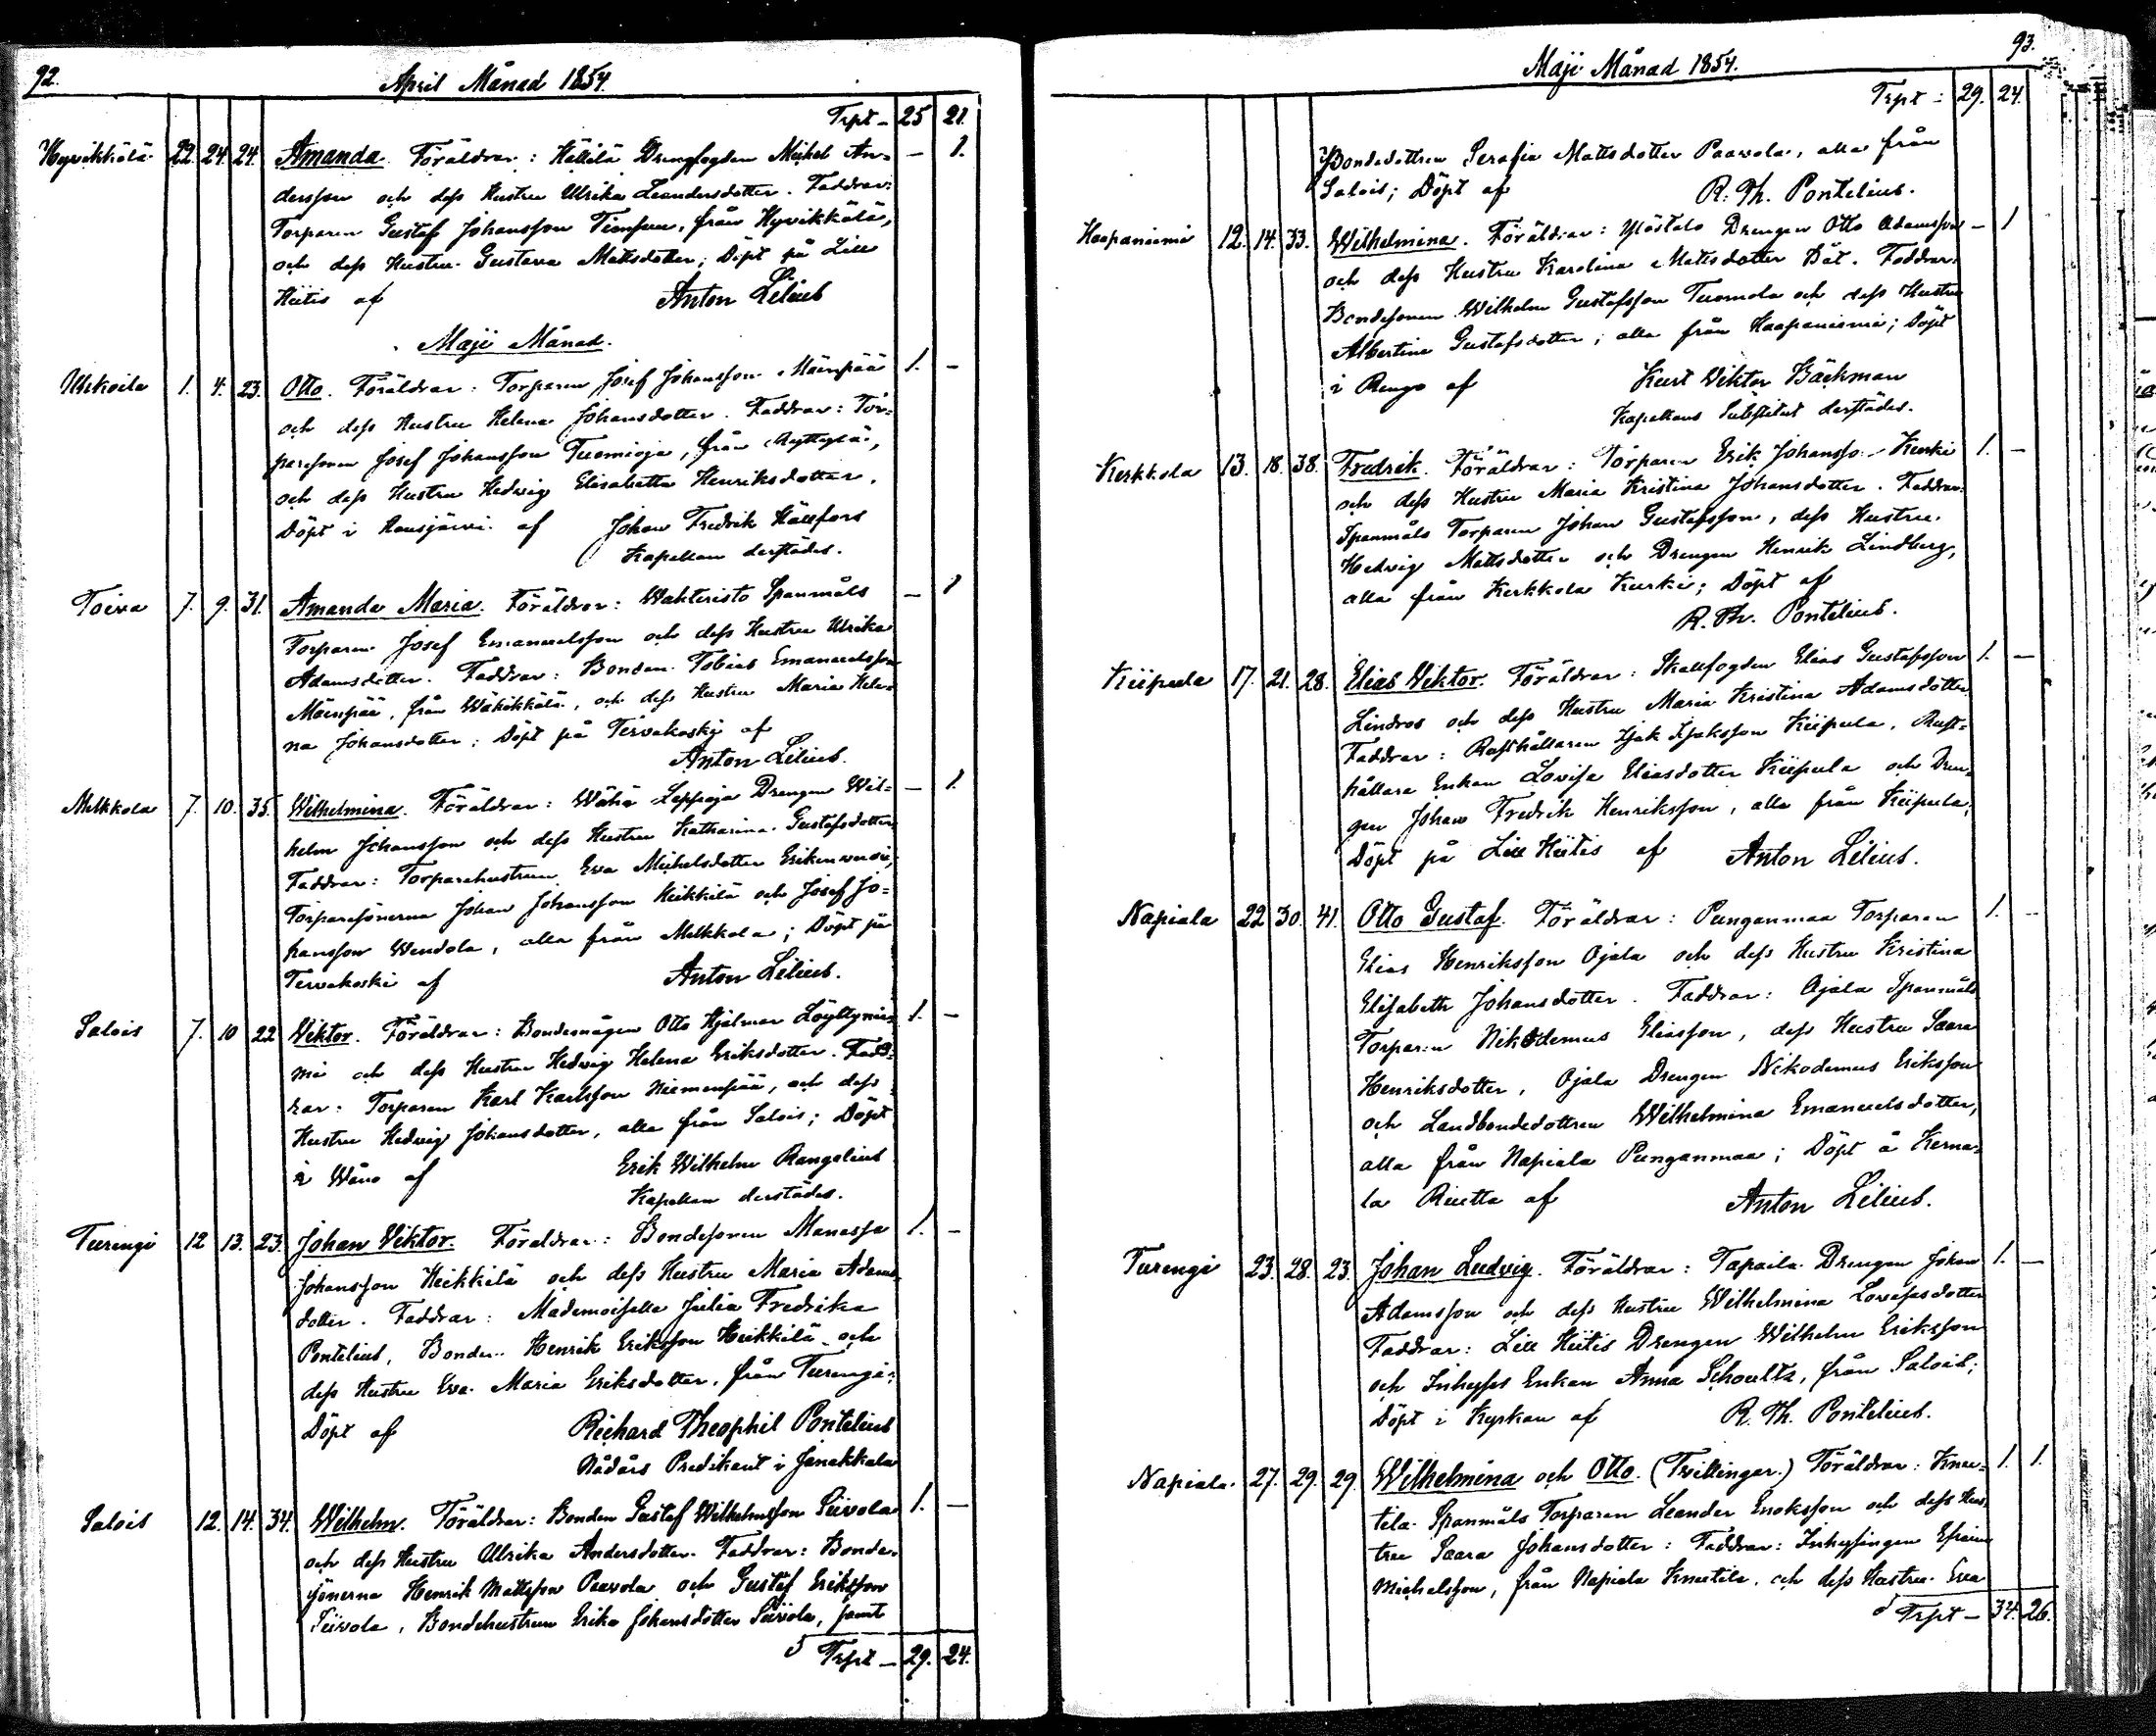 92.
April Månad 1854.
Trpt - 25 21.
Hyvikkälä 22. 24. 24. Amanda. Föräldrar: Hällilä Drengfogden Mickel An= — 1.
dersson och dess Hustru Ulrika Leandersdotter. Faddrar:
Torparen Gustaf Johansson Tiensuu, från Hyvikkälä,
och dess Hustru Gustava Mattsdotter; Döpt på Lill
Hiitis af Anton Lilius
Maji Månad.
Uhkoila 1. 4. 23. Otto. Föräldrar: Torparen Josef Johansson Mäenpää 1. —
och dess Hustru Helena Johansdotter. Faddrar: Tor=
paresonen Josef Johansson Tuomioja, från
och dess Hustru Hedvig Elisabetha Henriksdotter.
Döpt i Hausjärvi af Johan Fredrik Hällfors
Kapellan derstädes.
Toiva 7. 9. 31. Amanda Maria. Föräldrar: Wahteristo Spanmåls — 1
Torparen Josef Emanuelsson och dess Hustru Ulrika
Adamsdotter. Faddrar: Bonden Tobias Emanuelsson
Mäenpää, från Wäkikkälä, och dess Hustru Maria Hele=
na Johansdotter; Döpt på Tervakoski af
Anton Lilius.
Melkkola 7. 10. 35. Wilhelmina. Föräldrar: Wähä Leppoja Drengen Wil= — 1.
helm Johansson och dess Hustru Katharina Gustafsdotter
Faddrar: Torparehustrun Eva Michelsdotter
Torparesönerna Johan Johansson Heikkilä och Josef Jo=
hansson Wendola, alla från Melkkola; Döpt på
Tervakoski af Anton Lilius.
Salois 7. 10 22 Viktor. Föräldrar: Bondemågen Otto Hjalmar Löyttynie=  1. —
mi och dess Hustru Hedvig Helena Eriksdotter. Fadd=
rar: Torparen Karl Karlsson Niemenpää, och dess
Hustru Hedvig Johansdotter, alla från Salois; Döpt
i Wåno af Erik Wilhelm Rangelius
Kapellan derstädes.
Turengi 12 13. 23. Johan Viktor. Föräldrar: Bondesonen Manasse 1. —
Johansson Heikkilä och dess Hustru Maria Adams=
dotter. Faddrar: Mademoiselle Julia Fredrika
Pontelius, Bonden Henrik Eriksson Heikkilä och
dess Hustru Eva Maria Eriksdotter, från Turengi;
Döpt af Richard Theophil Pontelius
Nådårs Predikant i Janakkala
Salois 12. 14. 34. Wilhelm. Föräldrar: Bonden Gustaf Wilhelmsson Siivola 1. —
och dess Hustru Ulrika Andersdotter. Faddrar: Bonde=
sönerna Henrik Mattsson Paavola och Gustaf Eriksson
Siivola, Bondehustrun Erika Johansdotter Siivola, samt
Trpt — 29. 24.
93.
Maji Månad 1854.
Trpt - 29. 24.
Bondedottren Serafia Mattsdotter Paavola, alla från
Salois; Döpt af R. Th. Pontelius.
Haapaniemi 12. 14. 33. Wilhelmina. Föräldrar: Ylöstalo Drengen Otto Adamsson — 1
och dess Hustru Karolina Mattsdotter Båt. Faddrar:
Bondesonen Wilhelm Gustafsson Tuomola och dess Hustru
Albertina Gustafsdotter, alla från Haapaniemi; Döpt
i Rengo af Kurt Viktor Bäckman
Kapellans Substitut derstädes.
Kerkkola 13. 18. 38. Fredrik. Föräldrar: Torparen Erik Johansson Kurki 1. —
och dess Hustru Maria Kristina Johansdotter. Faddrar:
Spanmåls Torparen Johan Gustafsson, dess Hustru
Hedvig Mattsdotter och Drengen Henrik Lindberg,
alla från Kerkkola Kurki; Döpt af
R. Th. Pontelius.
Kiipula 17. 21. 28. Elias Viktor. Föräldrar: Skallfogden Elias Gustafsson 1. —
Lindros och dess Hustru Maria Kristina Adamsdotter
Faddrar: Rusthållaren Isak Isaksson Kiipula, Rust=
hållare Enkan Lovisa Eliasdotter Kiipula och Dren=
gen Johan Fredrik Henriksson, alla från Kiipula;
Döpt på Lill Hiitis af Anton Lilius.
Napiala 22 30. 41. Otto Gustaf. Föräldrar: Punganmaa Torparen 1. —
Elias Henriksson Ojala och dess Hustru Kristina
Elisabeth Johansdotter. Faddrar: Ojala Spanmåls
Torparen Nikodemus Eliasson, dess Hustru Saara
Henriksdotter, Ojala Drengen Nikodemus Eriksson
och Landbondedottren Wilhelmina Emanuelsdotter,
alla från Napiala Punganmaa; Döpt å Kerna=
la Riutta af Anton Lilius.
Turengi 23. 28. 23. Johan Ludvig. Föräldrar: Tapaila Drengen Johan 1. —
Adamsson och dess Hustru Wilhelmina Lovisasdotter
Faddrar: Lill Hiitis Drengen Wilhelm Eriksson
och Inhyses Enkan Anna Schoultz, från Salois;
Döpt i Kyrkan af R. Th. Pontelius.
Napiala. 27. 29. 29. Wilhelmina och Otto. (Tvillingar.) Föräldrar: Knuu= 1. 1.
tila Spanmåls Torparen Leander Enoksson och dess Hus=
tru Saara Johansdotter: Faddrar: Inhysingen Efraim
Michelsson, från Napiala Knuutila, och dess Hustru Eva
Trpt — 34. 26.